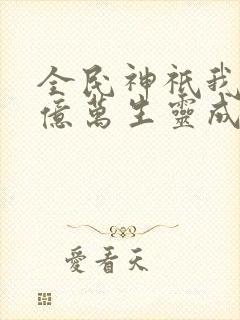 全民神祗我
億萬生靈成
愛看天